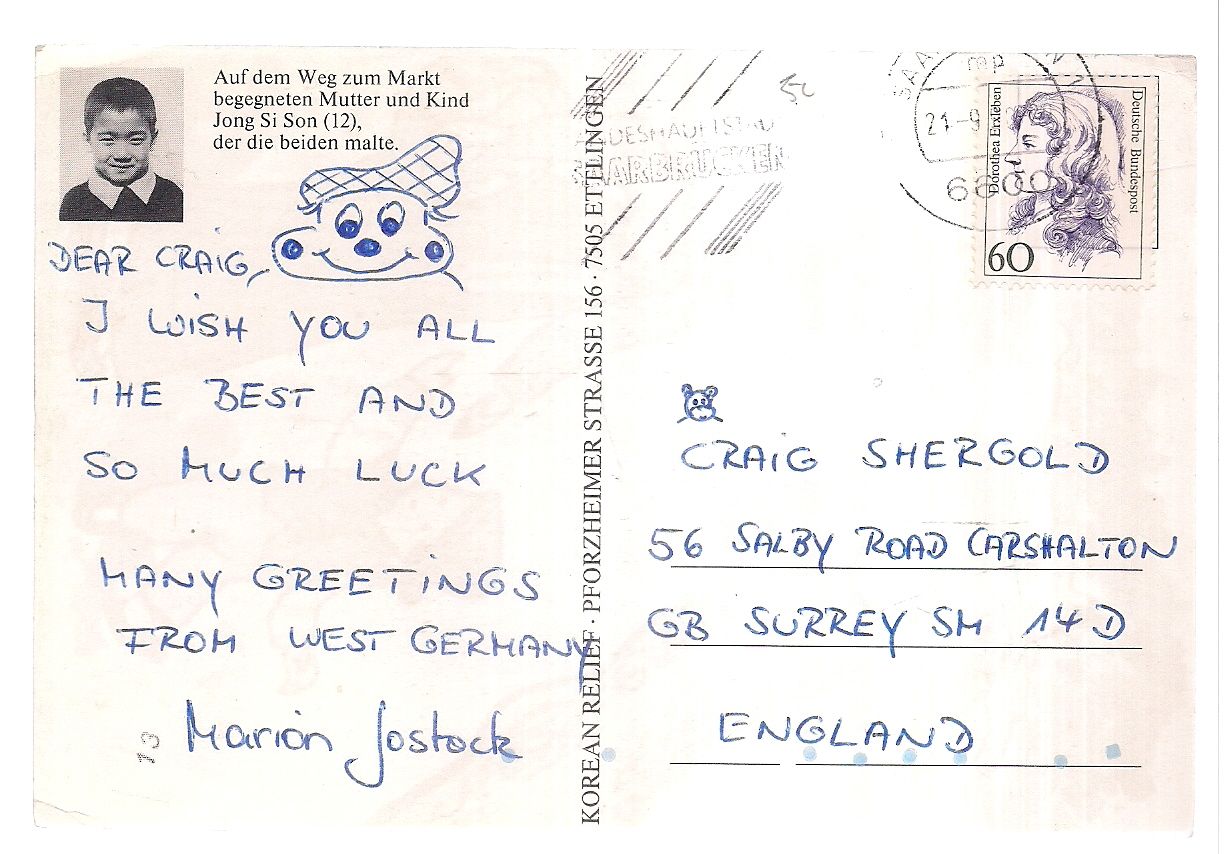 Auf dem Weg zum Markt
begegneten Mutter und Kind
Jong Si Son (12),
der die beiden malte.
DEAR CRAIG,
I WISH YOU ALL
THE BEST AND
SO MUCH LUCK
MANY GREETINGS
FROM WEST GERMANY
Marion Jostock
KOREAN RELIEF · PFORZHEIMER STRASSE 156 · 7505 ETTLINGEN
SAARBRÜCKEN
mp
21.-9
6600
Dorothea Erxleben
Deutsche Bundespost
60
CRAIG SHERGOLD
56 SALBY ROAD CARSHALTON
GB SURREY SM 14D
ENGLAND